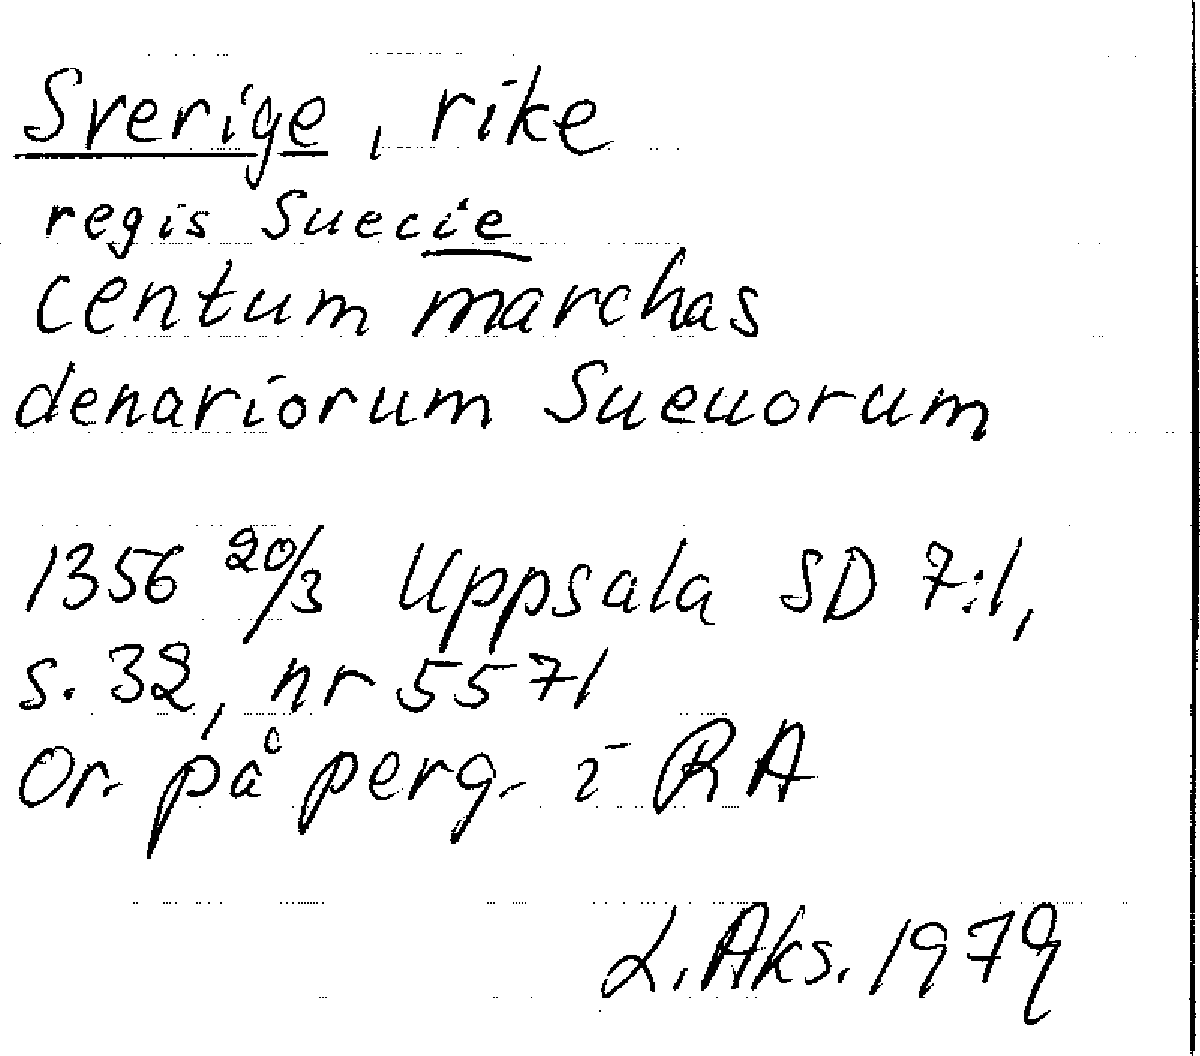 Sverige, rike
regis Suecie
centum marchas
denariorum Sueuorum
1356 20/3 Uppsala SD 7:1,
s. 32, nr 5571
Or. på perg. i RA
L. Aks. 1979